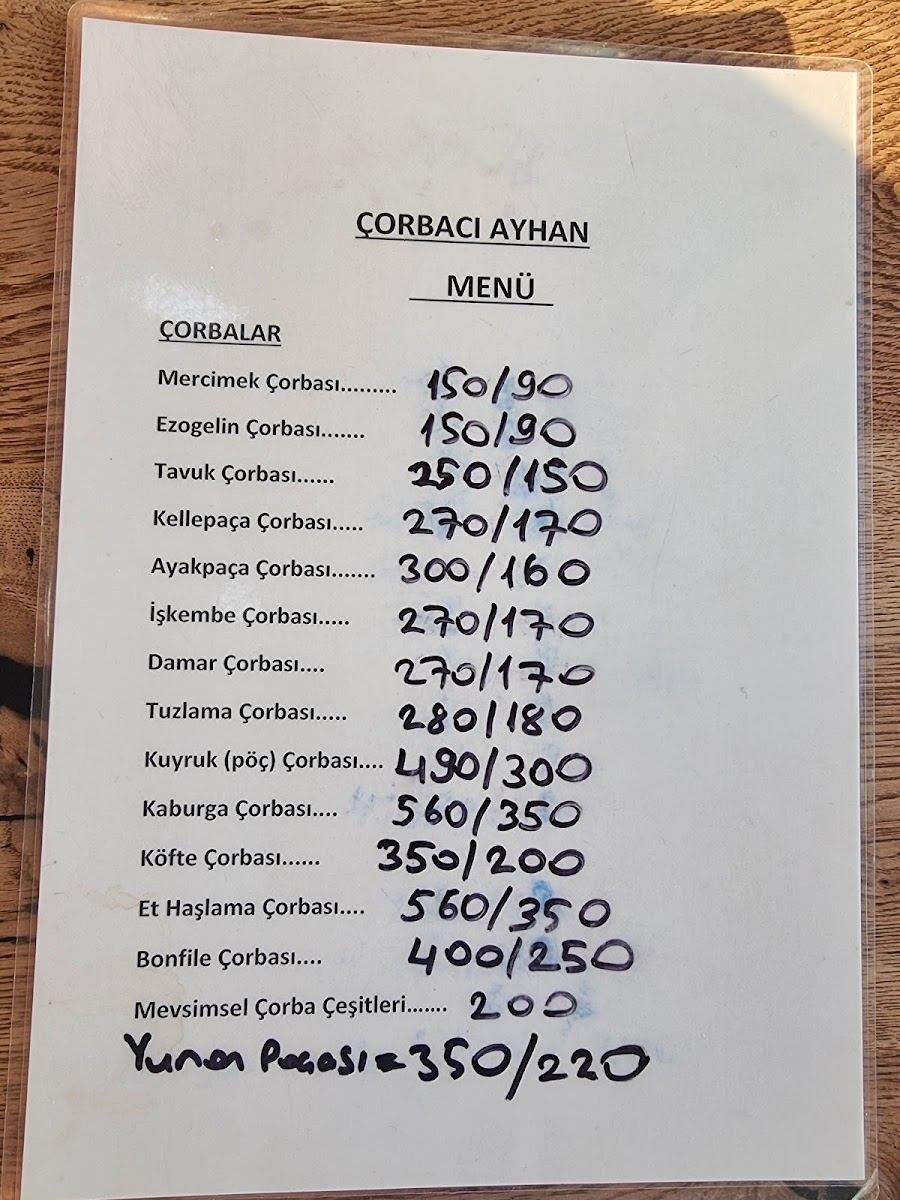 ÇORBACI AYHAN
MENÜ
ÇORBALAR
Mercimek Çorbası......... 150/90
Ezogelin Çorbası....... 150/90
Tavuk Çorbası...... 250/150
Kellepaça Çorbası..... 270/170
Ayakpaça Çorbası....... 300/160
İşkembe Çorbası..... 270/170
Damar Çorbası.... 270/170
Tuzlama Çorbası..... 280/180
Kuyruk (pöç) Çorbası.... 490/300
Kaburga Çorbası.... 560/350
Köfte Çorbası...... 350/200
Et Haşlama Çorbası.... 560/350
Bonfile Çorbası.... 400/250
Mevsimsel Çorba Çeşitleri....... 200
Yunan Paçası = 350/220